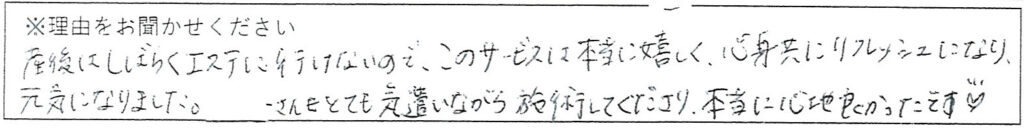 ※理由をお聞かせください
産後はしばらくエステに行けないので、このサービスは本当に嬉しく、心身共にリフレッシュになり、
元気になりました。 さんもとても気遣いながら施術してくださり、本当に心地良かったです♡